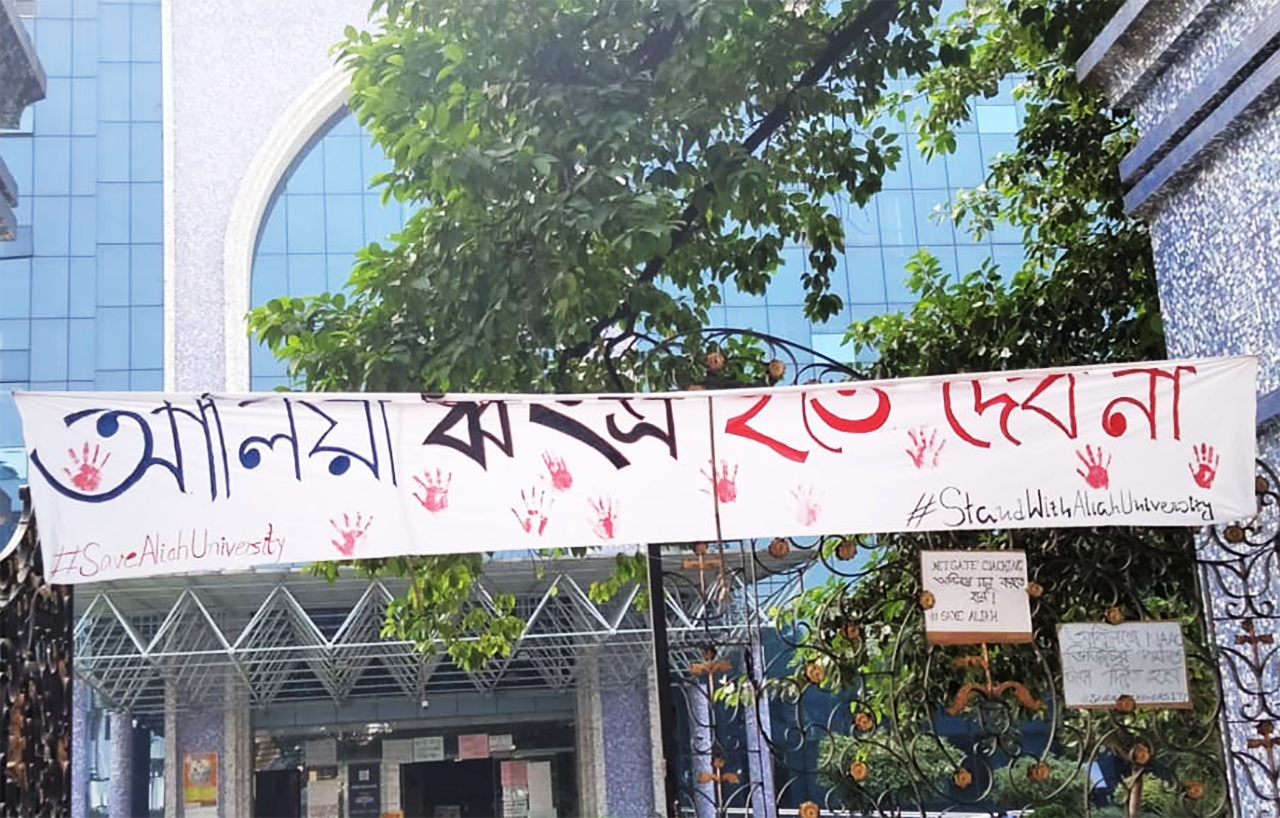 আলিয়া ধ্বংস হতে দেব না
#SaveAliahUniversity
#StandWithAliahUniversity
NET GATE COACHING
করতে
হবে!
# SAVE ALIAH
NAAC